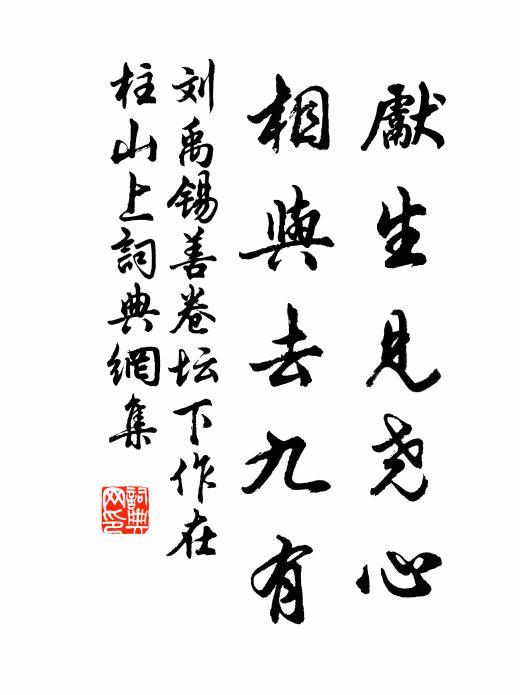 獻生見尧心
相與去九有
刘禹錫善卷坛下作在
柱山上詞典網集
詞典
网印